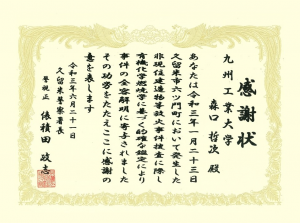 感謝状
九州工業大学
森口 哲次 殿
あなたは令和三年一月二十三日
久留米市六ツ門町において発生した
非現住建造物等放火事件捜査に際し
有機化学燃焼学に基づく的確な鑑定により
事件の全容解明に寄与されました
その功労をたたえここに感謝の
意を表します
令和三年六月二十一日
久留米警察署長
警視正 俵積田 政志